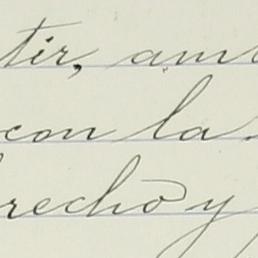 tir, am
con la
recho y